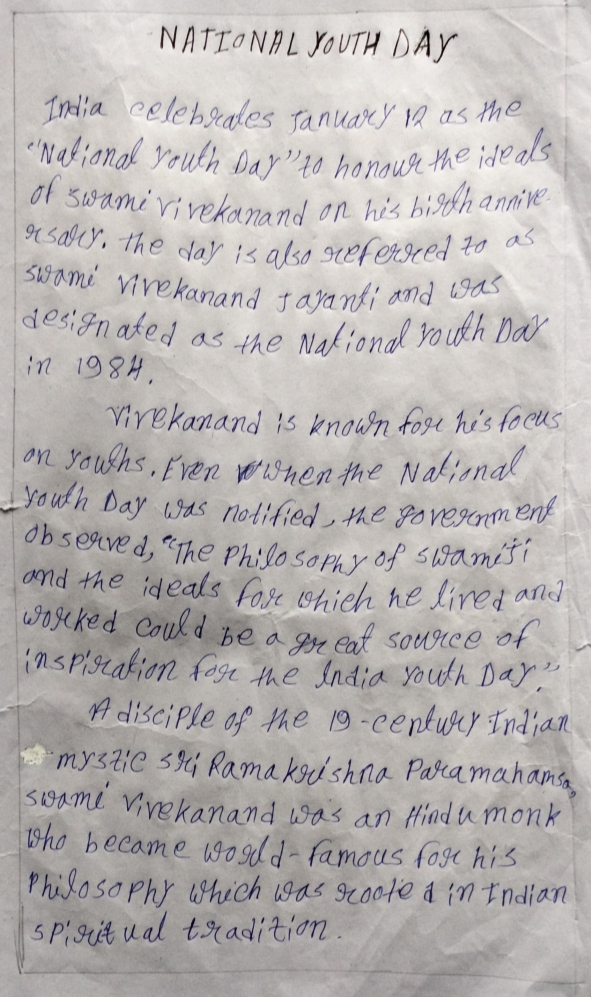 NATIONAL YOUTH DAY
India celebrates January 12 as the
"National Youth Day" to honour the ideals
of swami vivekanand on his birth annive-
rsary. The day is also referred to as
swami Vivekanand Jayanti and was
designated as the National Youth Day
in 1984.
Vivekanand is known for his focus
on youths. Even when the National
Youth Day was notified, the government
observed, "The Philosophy of swamiji
and the ideals for which he lived and
worked could be a great source of
inspiration for the India Youth Day."
A disciple of the 19-century Indian
mystic sri Ramakrishna Paramahamsa,
swami Vivekanand was an Hindu monk
who became world-famous for his
Philosophy which was rooted in Indian
spiritual tradition.